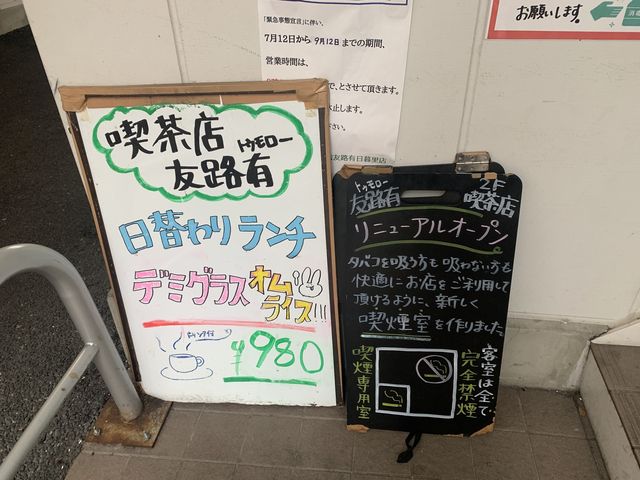 喫茶店
トゥモロー
友路有
日替わりランチ
デミグラスオム
ライス!!!
¥980
トゥモロー
友路有
2F
喫茶店
リニューアルオープン
タバコを吸う方も吸わない方も
快適にお店をご利用して
頂けるように、新しく
喫煙室を作りました。
客室は全て
完全禁煙
喫煙専用室
「緊急事態宣言」に伴い、
7月12日から 9月12日 までの期間、
営業時間は、
で、とさせて頂きます。
止します。
さい。
友路有日暮里店
お願いします。